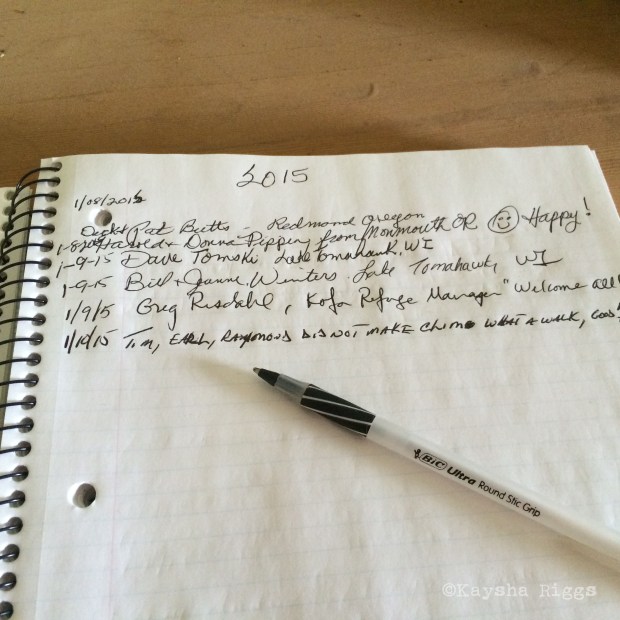 2015
1/08/2015
Dick & Pat Butts - Redmond Oregon
1-8-15 Harold & Donna Pippen from Monmouth OR Happy!
1-9-15 Dave Tomski Lake Tomahawk, WI
1-9-15 Bill & Jeanne Winters Lake Tomahawk, WI
1/9/15 Greg Risdahl, Kofa Refuge Manager "Welcome all!
1/10/15 Tim, Earl, Raymond did not make climb what a walk, Good
BIC Ultra Round Stic Grip
©Kaysha Riggs